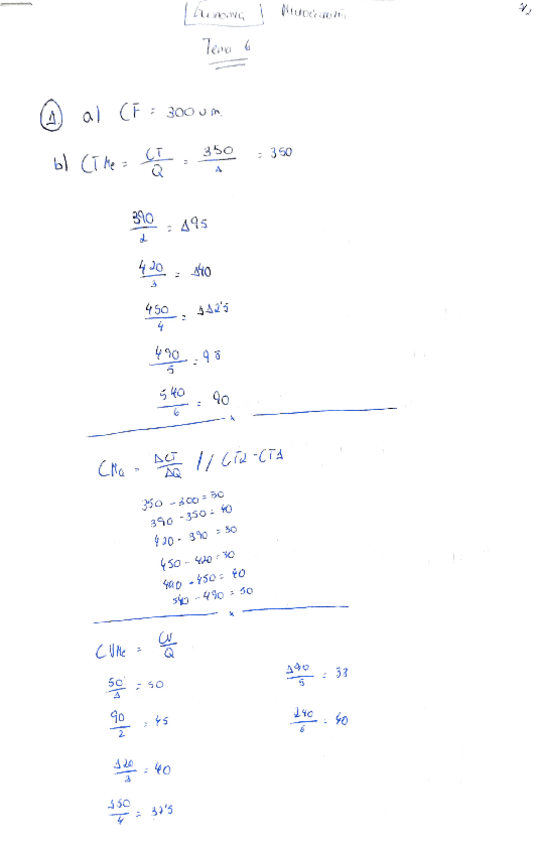 Microeconomía
Tema 6
1. a) CF = 300 u.m.
b) CTMe = CT/Q = 350/1 = 350
390/2 = 195
420/3 = 140
450/4 = 112'5
490/5 = 98
540/6 = 90
CMa = ΔCT/ΔQ // CT2 - CT1
350 - 300 = 50
390 - 350 = 40
420 - 390 = 30
450 - 420 = 30
490 - 450 = 40
540 - 490 = 50
CVMe = CV/Q
50/1 = 50
90/2 = 45
120/3 = 40
150/4 = 37'5
190/5 = 38
240/6 = 40